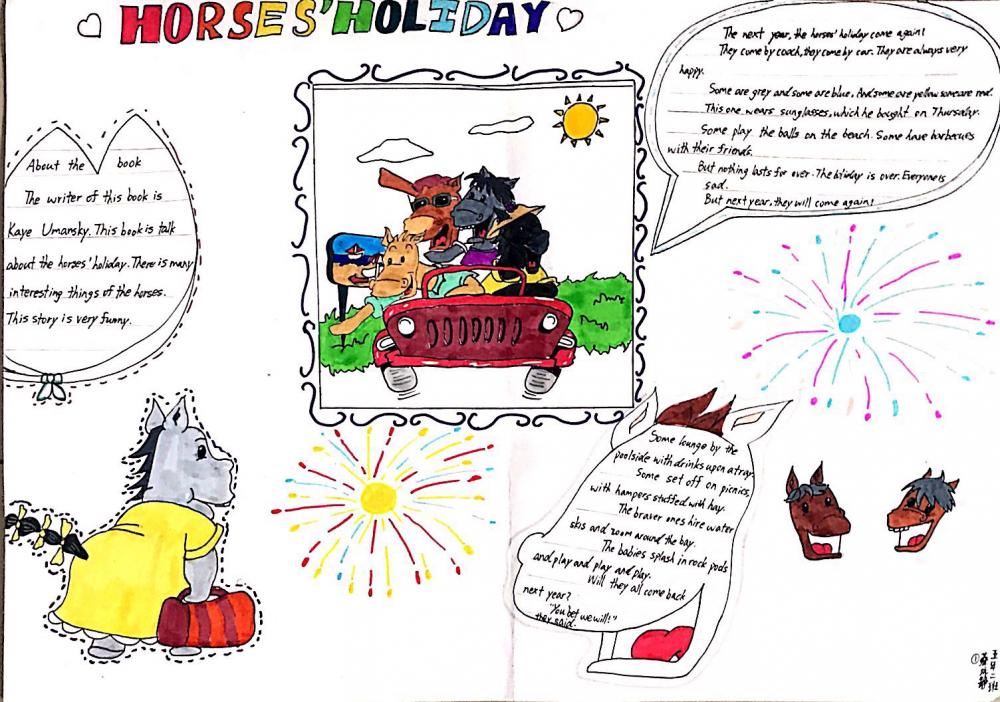 HORSES' HOLIDAY
About the book
The writer of this book is
Kaye Umarsky. This book is talk
about the horses' holiday. There is many
interesting things of the horses.
This story is very funny.
The next year, the horses' holiday come again!
They come by coach, they come by car. They are always very
happy.
Some are grey and some are blue. And some are yellow some are red.
This one wears sunglasses, which he bought on Thursday.
Some play the balls on the beach. Some have barbecues
with their friends.
But nothing lasts for over. The holiday is over. Everyone is
sad.
But next year, they will come again!
Some lounge by the
poolside with drinks upon a tray.
Some set off on picnics,
with hampers stuffed with hay.
The braver ones hire water
skis and zoom around the bay.
The babies splash in rock pools
and play and play and play.
Will they all come back
next year?
"You bet we will!"
they said.
五年二班
①